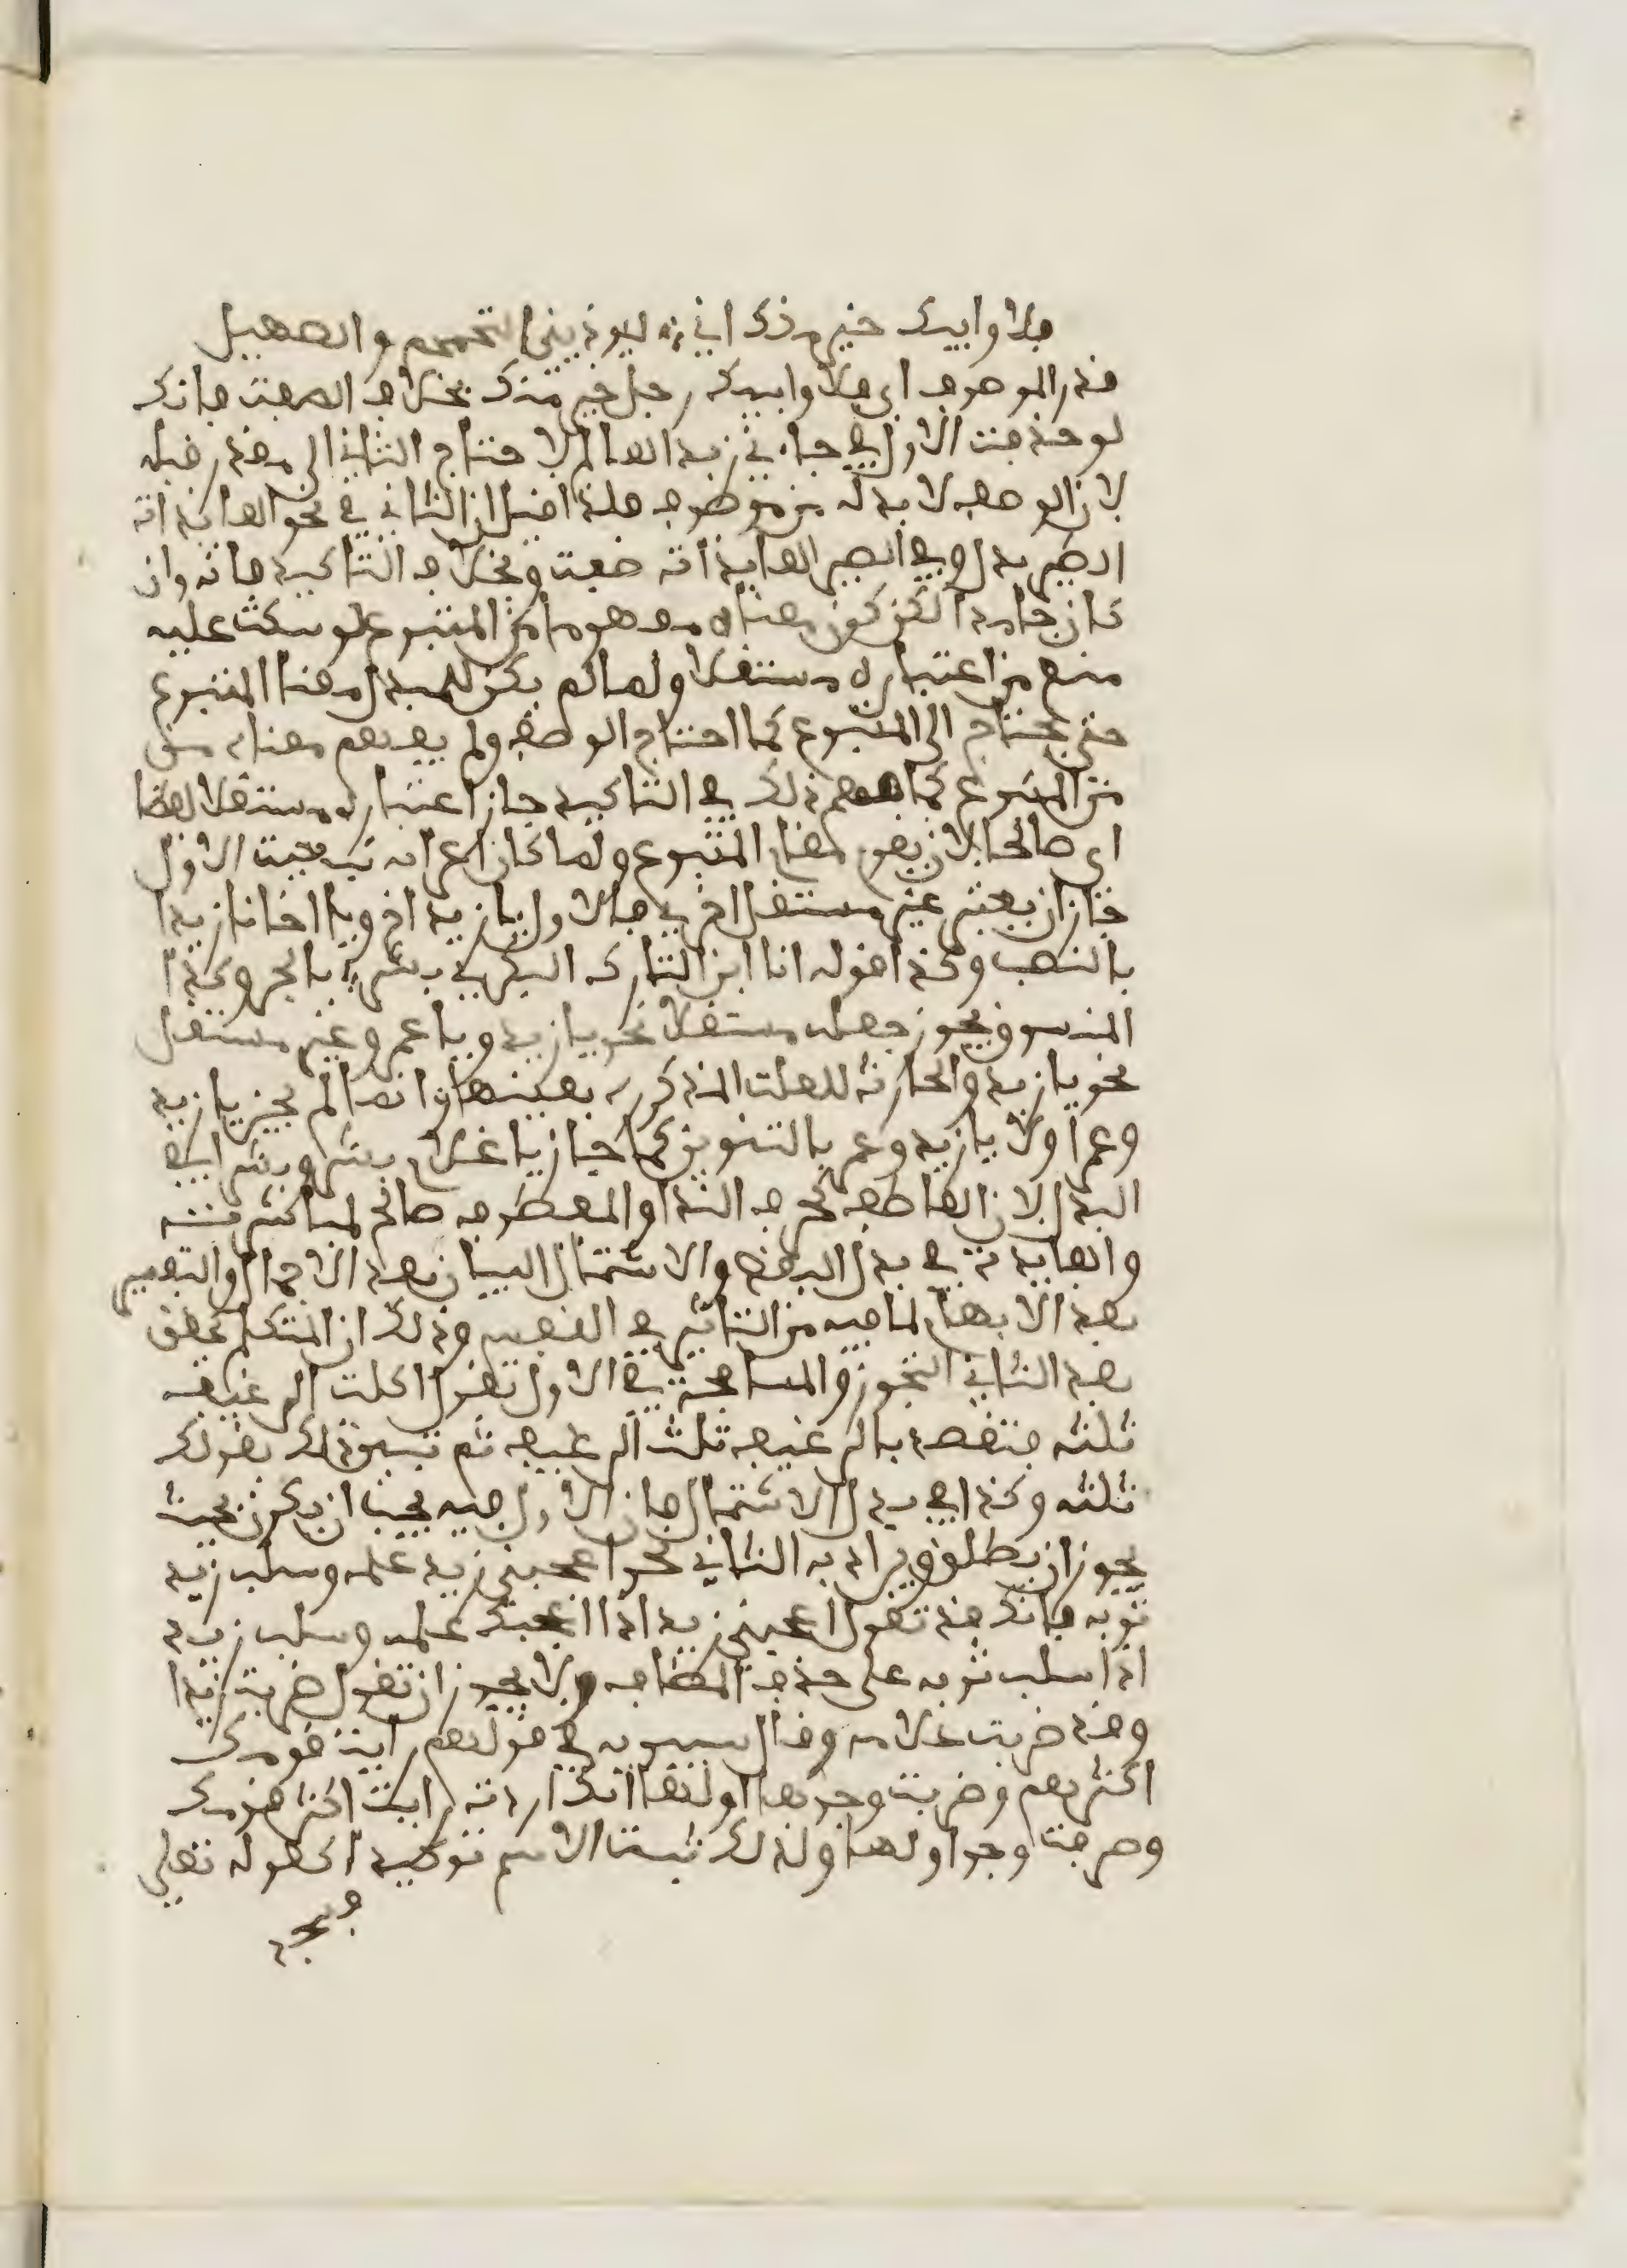 فلا وابيك خير منك اني ليوذيني التحمحم والصهيل
قدر الموصوف اى فلا وابيك رجل خير منك بخلاف الصفت فانك
لو حذفت الاول في جاءني زيد العالم لا حتاج الثاني الى مقدر قبله
لان الوصف لابد له من موصوف فلذا قيل ان الثاني في نحو العايذات
الطير بدل وفي الطير العايذات صفت وبخلاف التاكيد فانه وان
كان جامدا لكن كون معناه مفهوما من المتبوع لو سكت عليه
منع من اعتباره مستقلا ولما لم يكن للبدل معنا المتبوع
حتى يحتاج الى المتبوع كما احتاج الوصف ولم يفهم معناه من
من المتبوع كما فهم ذلك في التاكيد جاز اعتباره مستقلا لفظا
اى صالحا لان يقوم مقام المتبوع ولما كان اعرابه بتبعيت الاول
جاز ان يعتبر غير مستقل اخرى فالاول يا زيد اخ ويا اخانا زيدا
بالنصب وكذا قوله انا ابن التارك البكري بشر بالجر وكذا
المنسوق يجوز جعله مستقلا نحو يا زيد ويا عمرو وغير مستقل
نحو يا زيد والحارث للعلت المذكورة بعينها وانما لم يجز يا زيد
وعمرا ولا يا زيد وعمر بالتنوين كما جاز يا غلام بشر وبشرا في
البدل لان العاطف كحرف الندا والمعطوف صالح لمباشرته
والفايدة في بدل البعض والاشتمال البيان بعد الاجمال والتفسير
بعد الابهام لما فيه من التاثير في النفس وذلك ان المتكلم يحقق
بعد الثاني التجوز والمسامحة في الاول تقول اكلت الرغيف
ثلثه فتقصد بالرغيف ثلث الرغيف ثم تبين ذلك بقولك
ثلثه وكذا في بدل الاشتمال فان الاول فيه يجب ان يكون بحيث
يجوز ان يطلق ويراد به الثاني نحو اعجبني زيد علمه وسلب زيد
ثوبه فانك قد تقول اعجبني زيد اذا اعجبك علمه وسلب زيد
اذا سلب ثوبه على حذف المضاف ولا يجوز ان تقول ضربت زيدا
وقد ضربت غلامه وقال سيبويه في قولهم رايت قومك
اكثرهم وضربت وجوهها اولها انك اردت رايت اكثر قومك
وصرفت وجوا ولها ولذلك ثبت الاسم توكيدا كقوله تعلى
فسجد